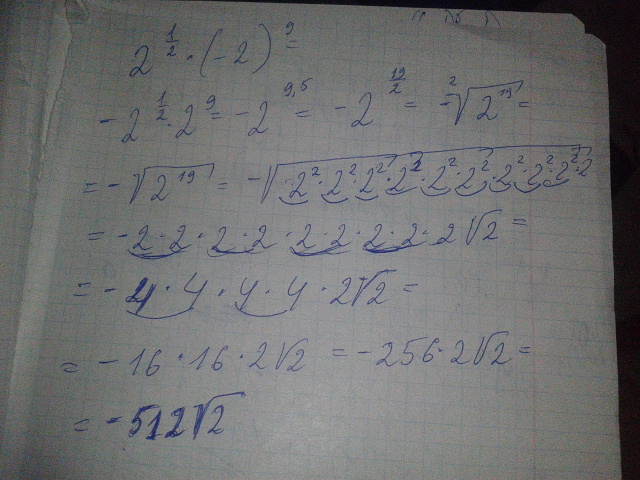 2^{\frac{1}{2}} · (-2)^9 =
-2^{\frac{1}{2}} · 2^9 = -2^{9,5} = -2^{\frac{19}{2}} = -\sqrt[2]{2^{19}} =
= -\sqrt{2^{19}} = -\sqrt{2^2·2^2·2^2·2^2·2^2·2^2·2^2·2^2·2^2·2}
= -2·2·2·2·2·2·2·2·2√2 =
= -4·4·4·4·2√2 =
= -16·16·2√2 = -256·2√2 =
= -512√2